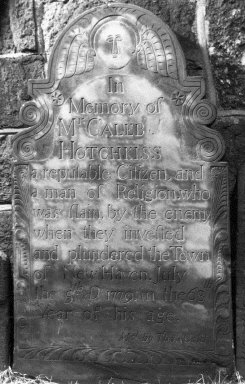 In
Memory of
Mr CALEB
HOTCHKISS
a reputable Citizen, and
a man of Religion, who
was slain by the enemy
when they invested
and plundered the Town
of New Haven July
the 5th AD 1779 in the 68th
Year of his age.